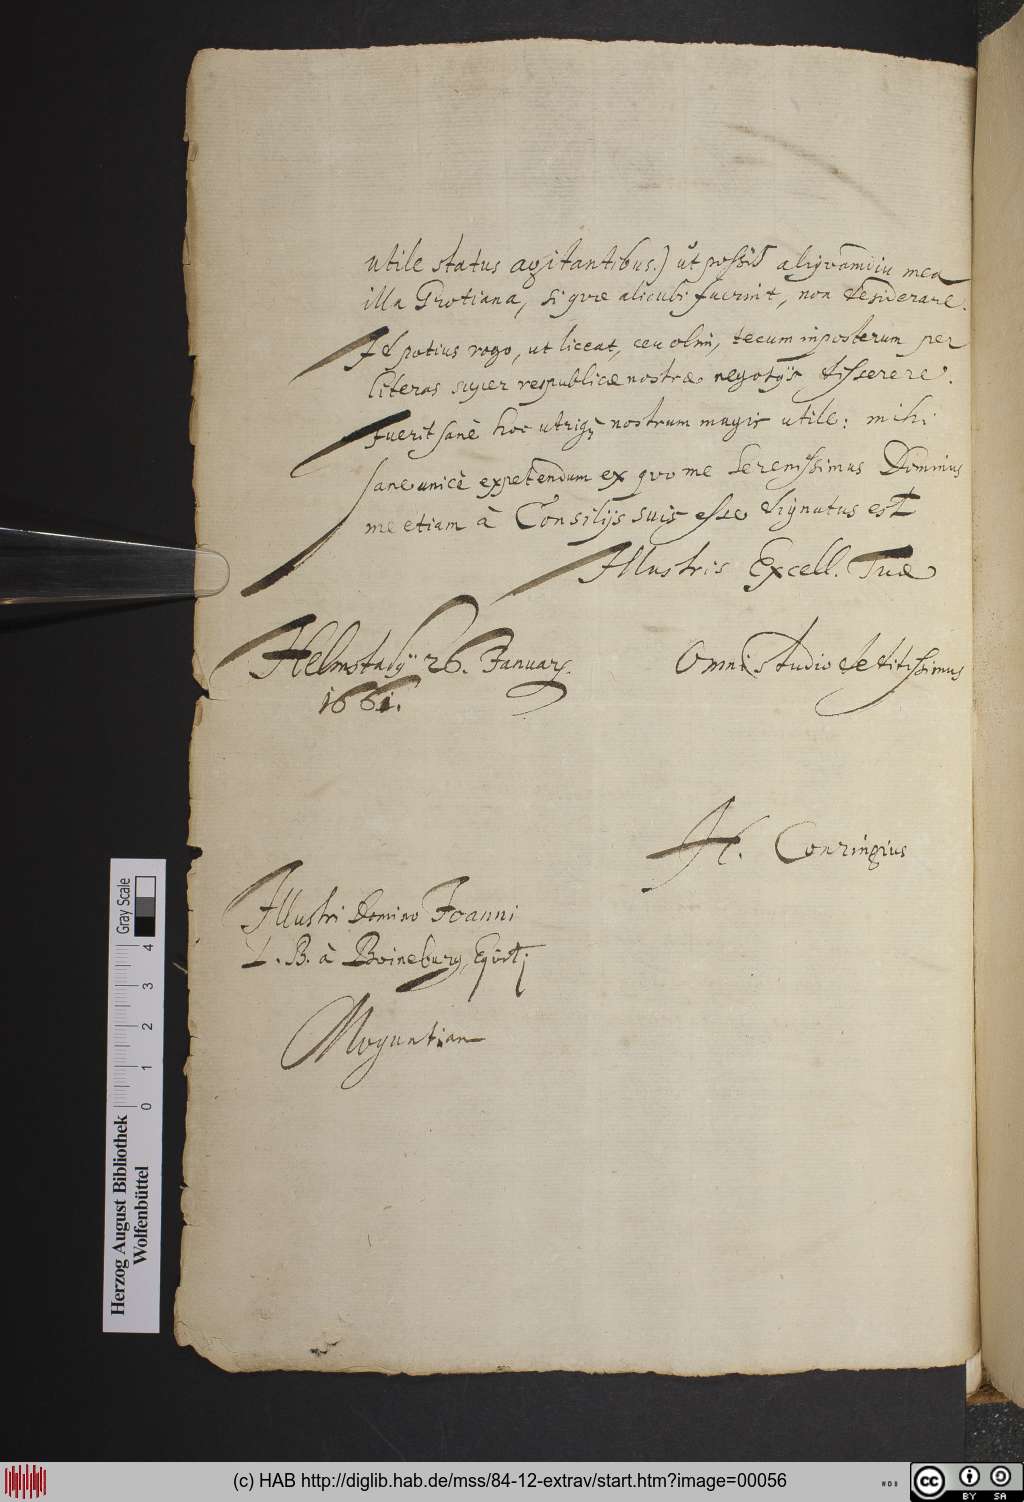 utile status agitantibus.) ut possis aliqvamdiu mea
illa Grotiana, si qvæ alicubi fuerint, non desiderare.
Id potius rogo, ut liceat, ceu olim, tecum inposterum per
literas super reipublicæ nostræ negotijs disserere.
Fuerit sanè hoc utriqȝ nostrum magis utile: mihi
sane unicè expetendum ex qvo me Serenissimus Dominus
me etiam à Consilijs suis esse dignatus est
Illustris Excell. Tuæ
Helmstadij 26. Januarij.
1661.
Omni studio deditissimus
H. Conringius
Illustri Domino Joanni
L. B. à Boineburg, Eqvit;
Moguntiam
Herzog August Bibliothek
Wolfenbüttel
0 1 2 3 4
Gray Scale
(c) HAB http://diglib.hab.de/mss/84-12-extrav/start.htm?image=00056
WDB
cc BY SA